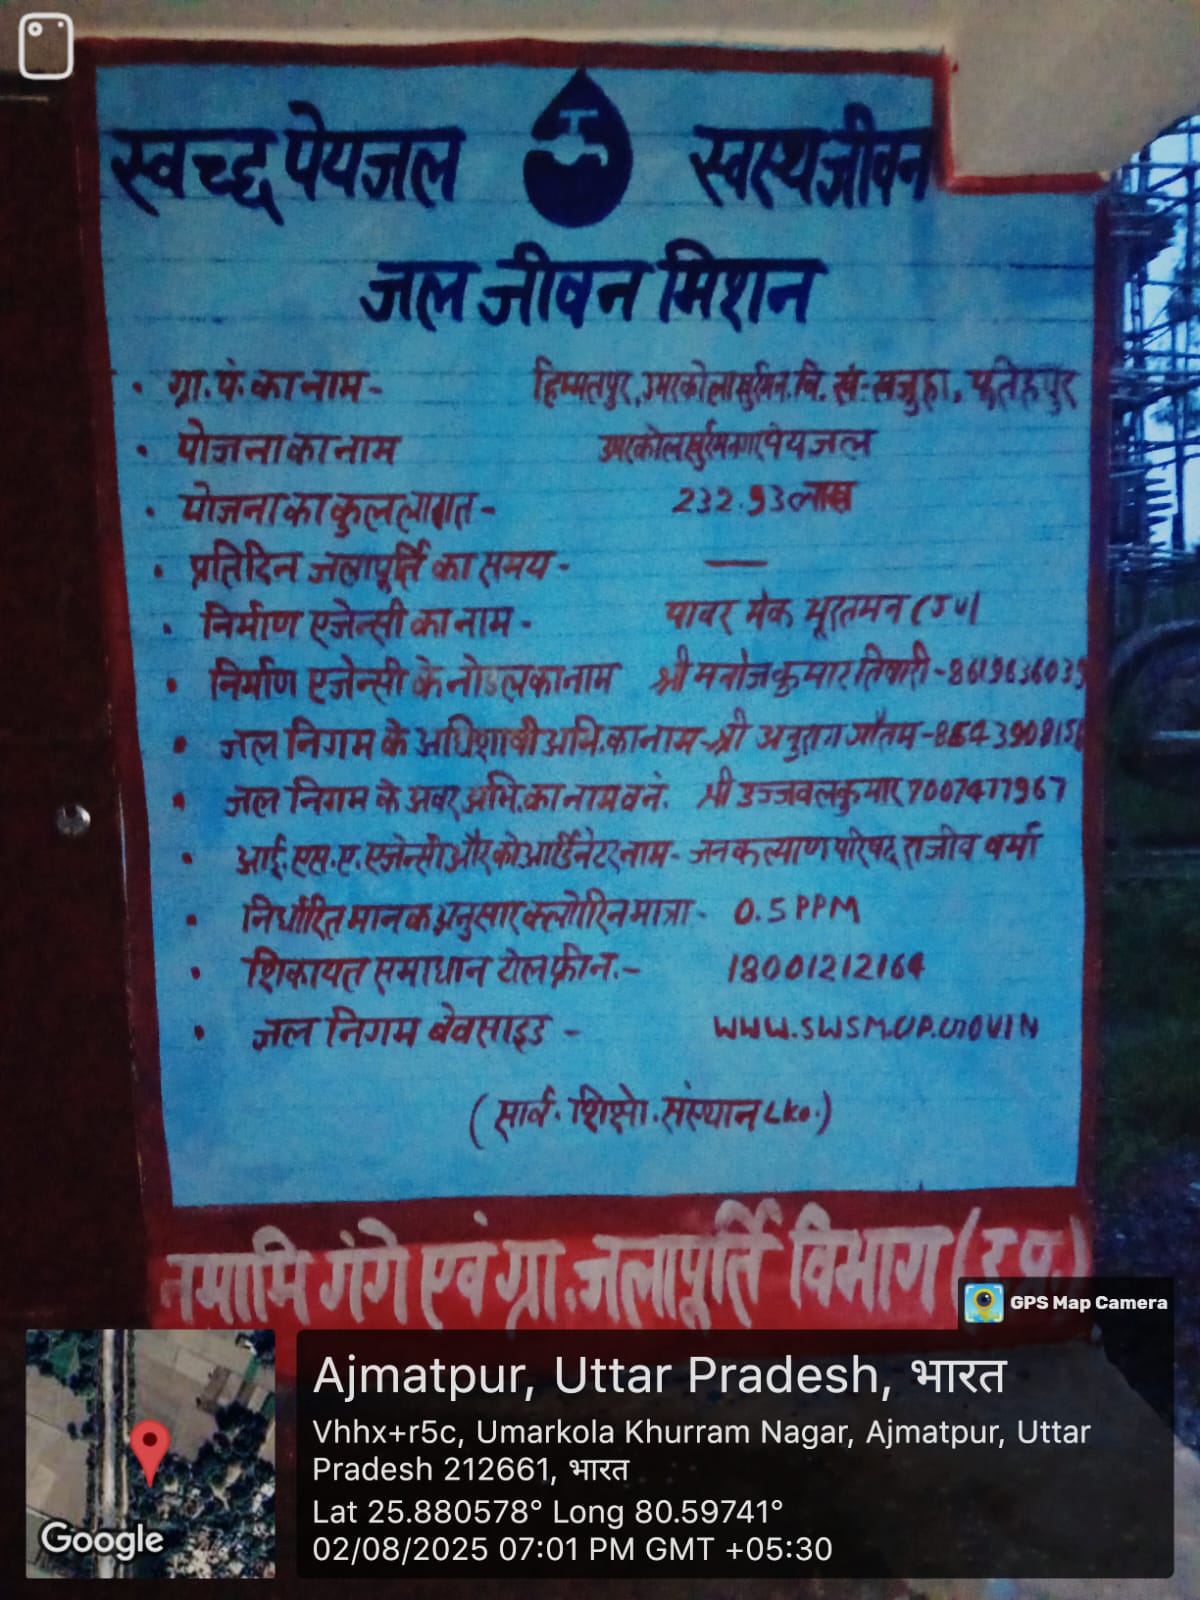 स्वच्छ पेयजल स्वस्थ जीवन
जल जीवन मिशन
• ग्रा.पं. का नाम - हिम्मतपुर, उमरकोला खुर्रमन. वि. खं- खजुहा, फतेहपुर
• योजना का नाम उमरकोल खुर्रमनगर पेयजल
• योजना का कुल लागत - 232.93 लाख
• प्रतिदिन जलापूर्ति का समय - —
• निर्माण एजेन्सी का नाम - पावर मेक भूरतमन (JV)
• निर्माण एजेन्सी के नोडल का नाम श्री मनोज कुमार तिवारी - 861963603
• जल निगम के अधिशाषी अभि. का नाम - श्री अनुराग गौतम -
• जल निगम के अवर अभि. का नाम व नं. श्री उज्जवल कुमार 7007477967
• आई. एस. ए. एजेन्सी और कोआर्डिनेटर नाम - जनकल्याण परिषद राजीव वर्मा
• निर्धारित मानक अनुसार क्लोरिन मात्रा - 0.5 PPM
• शिकायत समाधान टोल फ्री न. - 18001212164
• जल निगम बेवसाइड - WWW.SWSM.UP.GOVIN
(सार्व. शिक्षो. संस्थान LKo.)
नमामि गंगे एवं ग्रा. जलापूर्ति विभाग (उ.प्र.)
GPS Map Camera
Ajmatpur, Uttar Pradesh, भारत
Vhhx+r5c, Umarkola Khurram Nagar, Ajmatpur, Uttar
Pradesh 212661, भारत
Lat 25.880578° Long 80.59741°
02/08/2025 07:01 PM GMT +05:30
Google